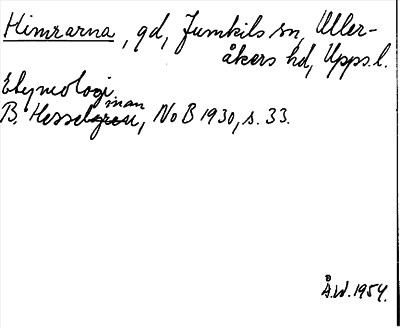 Himrarna, gd, Jumkils sn, Uller-
åkers hd, Upps.l.
Etymologi
B. Hesselman, NoB 1930, s. 33.
Å.W. 1954.